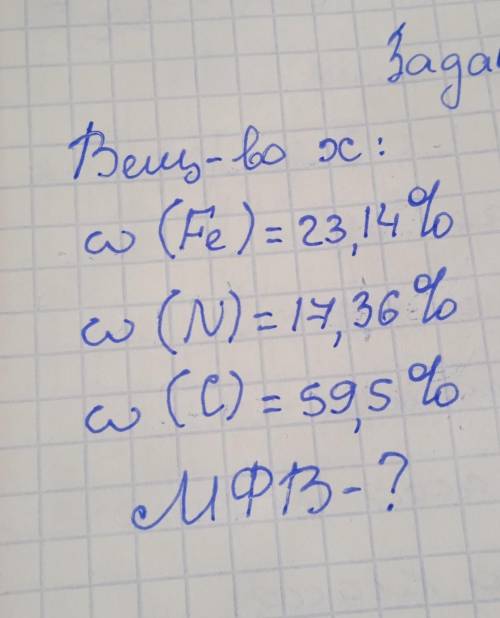 Зада
Вещ-во х:
ω (Fe) = 23,14%
ω (N) = 17,36%
ω (C) = 59,5%
МФВ-?